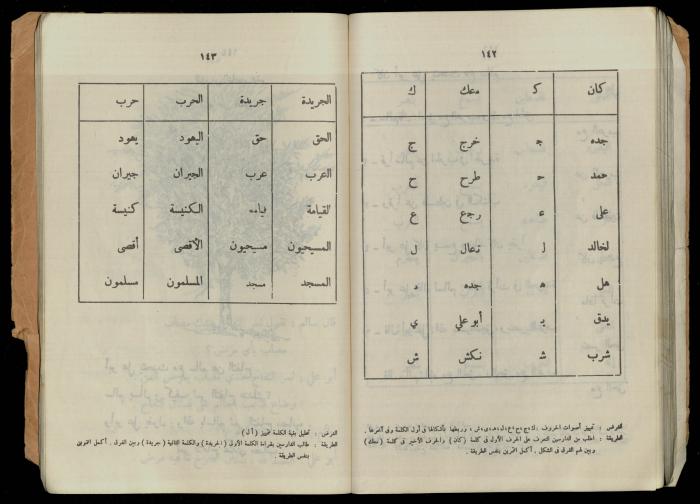 ١٤٢
كان كـ معك ك
جده جـ خرج ج
حمد حـ طرح ح
على عـ رجع ع
لخالد لـ تعال ل
هل هـ جده ـه
يدق يـ أبو علي ي
شرب شـ نكش ش
الغرض : تمييز أصوات الحروف : ك ، ج ، ح ، ع ، ل ، هـ ، ى ، ش ، وربطها بأشكالها فى أول الكلمة وفى آخرها .
الطريقة : اطلب من الدارسين التعرف على الحرف الأول فى كلمة ( كان ) والحرف الأخير فى كلمة ( معك )
وبين لهم الفرق فى الشكل . أكمل التمرين بنفس الطريقة .
١٤٣
الجريدة جريدة الحرب حرب
الحق حق اليهود يهود
العرب عرب الجيران جيران
القيامة قيامة الكنيسة كنيسة
المسيحيون مسيحيون الأقصى أقصى
المسجد مسجد المسلمون مسلمون
الغرض : تحليل بنية الكلمة لتمييز ( أل )
الطريقة : طالب الدارسين بقراءة الكلمة الأولى ( الجريدة ) والكلمة الثانية ( جريدة ) وبين الفرق . أكمل التمرين
بنفس الطريقة .